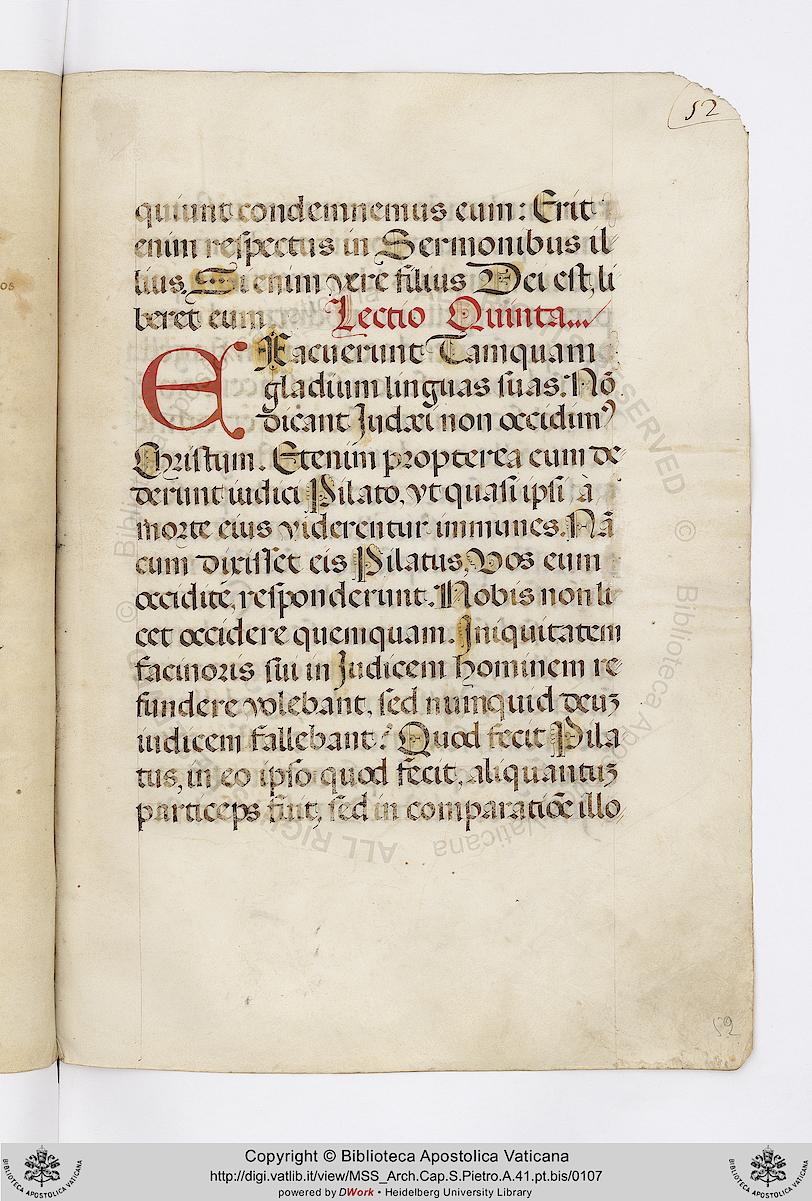 52
quiunt condemnemus eum: Erit
enim respectus in Sermonibus il-
lius. Si enim vere filius Dei est, li
beret eum. Lectio Quinta...
EXacuerunt Tamquam
gladium linguas suas. Nō
dicant Judæi non occidim9
Christum. Etenim propterea eum de-
derunt iudici Pilato, vt quasi ipsi à
morte eius viderentur immunes. Nā
cum dixisset eis Pilatus, Vos eum
occidite, responderunt. Nobis non li-
cet occidere quemquam. Iniquitatem
facinoris sui in Judicem hominem re-
fundere volebant, sed nunquid deuʒ
iudicem fallebant? Quod fecit Pila
tus, in eo ipso quod fecit, aliquantuʒ
particeps fuit, sed in comparatiōe illo-
52
Copyright © Biblioteca Apostolica Vaticana
http://digi.vatlib.it/view/MSS_Arch.Cap.S.Pietro.A.41.pt.bis/0107
powered by DWork • Heidelberg University Library